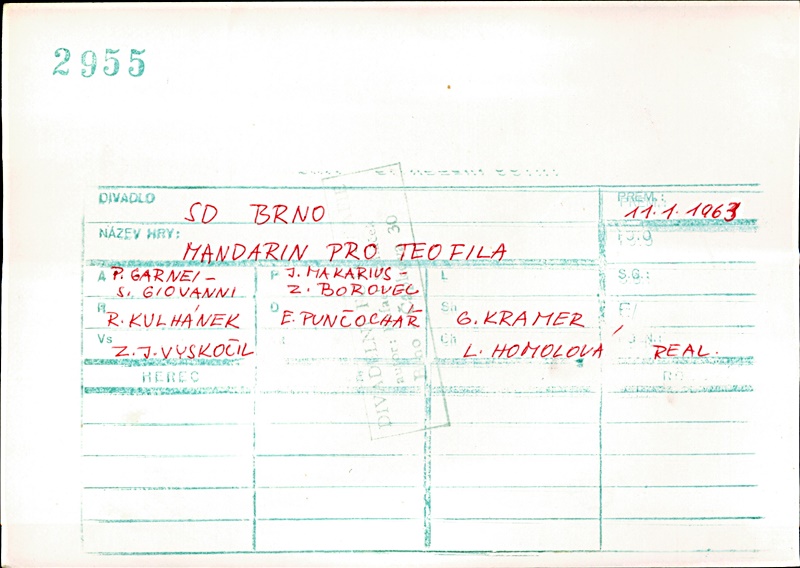 2955
DIVADLO SD BRNO PREM.: 11.1.1963
NÁZEV HRY: MANDARIN PRO TEOFILA
A P. GARNEI - S. GIOVANNI P J. MAKARIUS - Z. BOROVEC L S.G.:
R. KULHÁNEK E. PUNČOCHÁŘ Sh G. KRAMER
Vs Z. J. VYSKOČIL Ch L. HOMOLOVÁ REAL.
HEREC